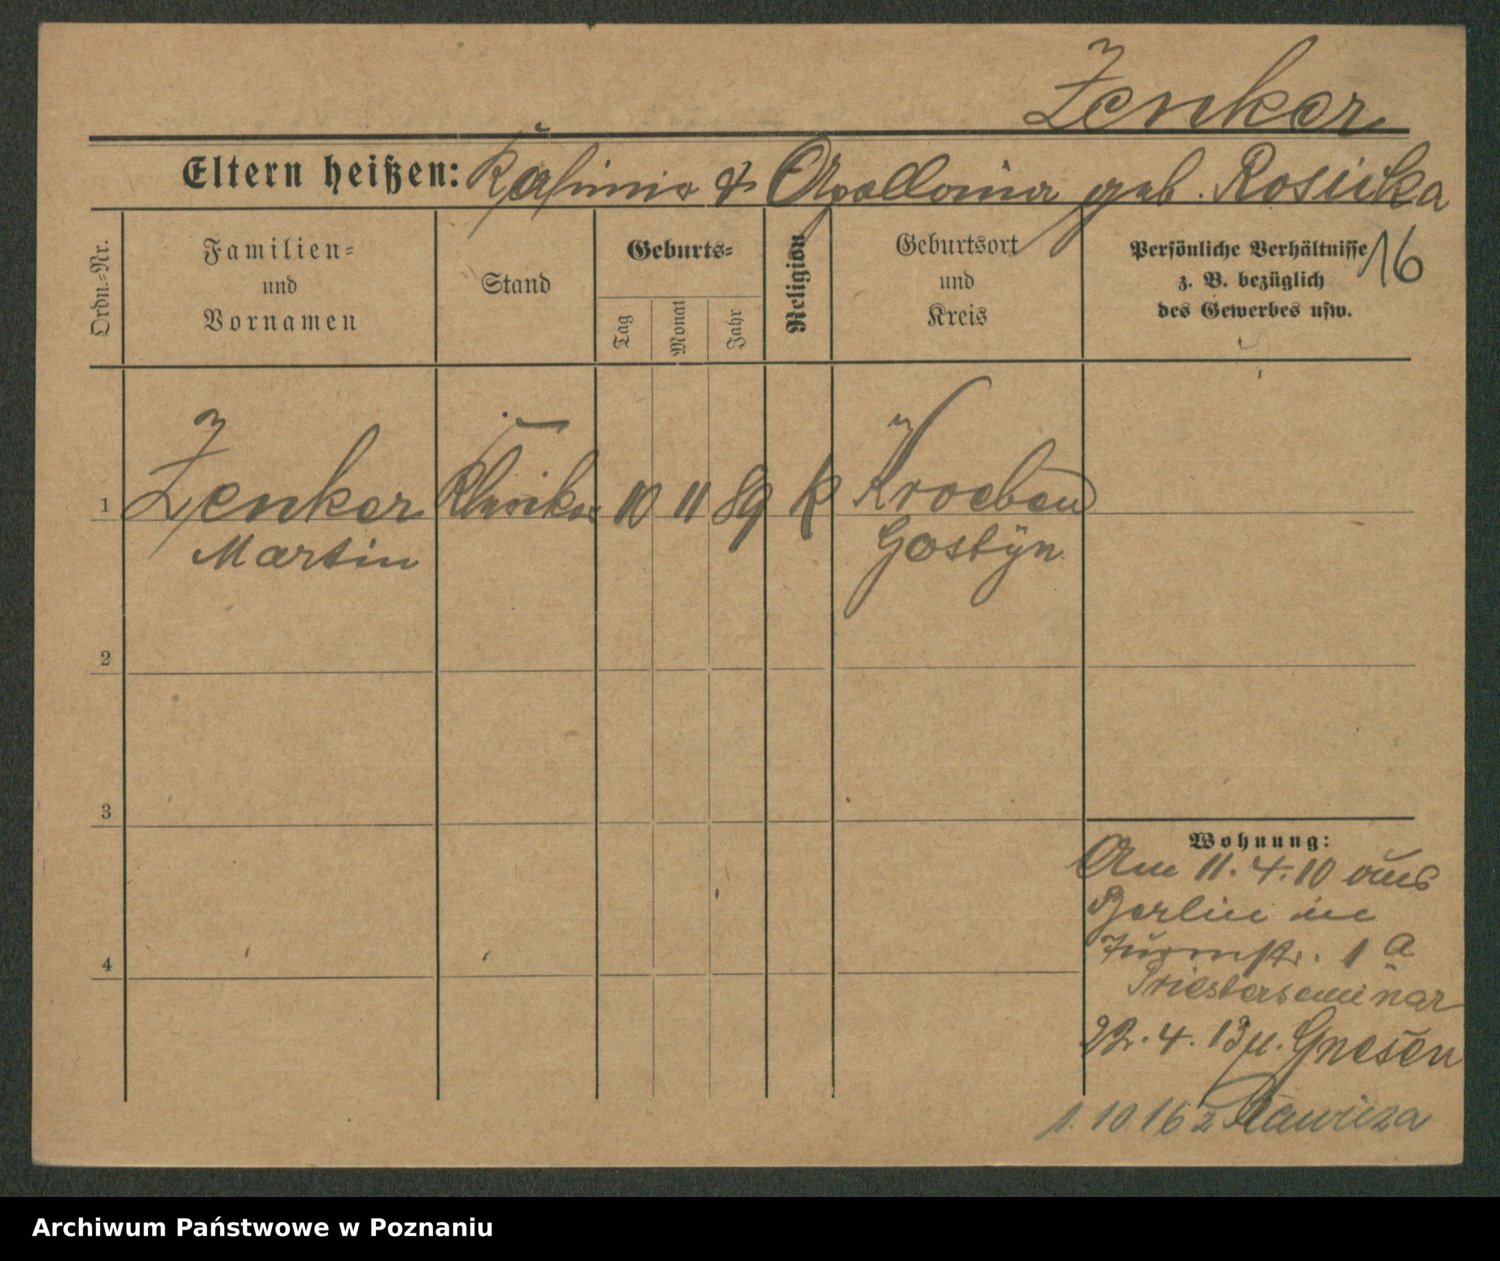 Zenker
Eltern heißen: Kasimir & Apollonia geb. Rosicka
Ordn.-Nr.
Familien-
und
Vornamen
Stand
Geburts-
Tag
Monat
Jahr
Religion
Geburtsort
und
Kreis
Persönliche Verhältnisse
z. B. bezüglich
des Gewerbes usw.
16
1 Zenker Kleriker 10 11 89 k Kroeben
Martin Gostÿn
2
3
Wohnung:
Am 11.4.10 aus
Berlin in
4 Turmstr. 1 a
Priesterseminar
22.4.13 n. Gnesen
1.10.16 z Rawicza
Archiwum Państwowe w Poznaniu